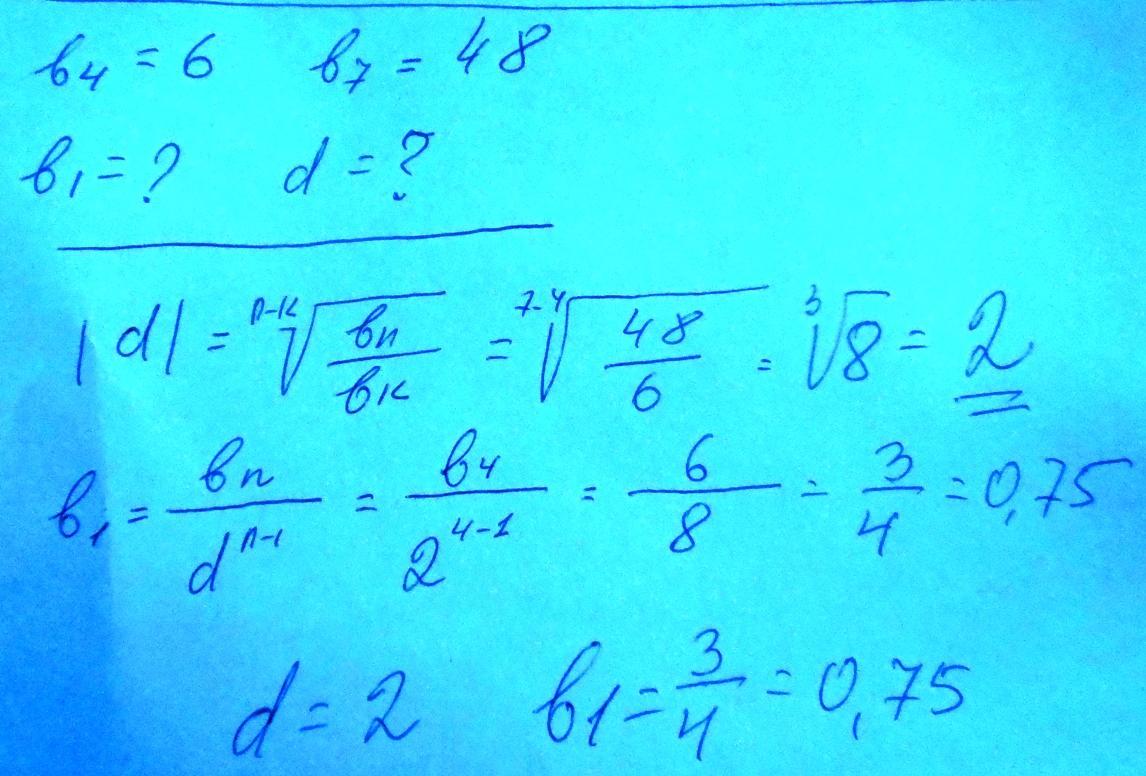 b₄ = 6 b₇ = 48
b₁ = ? d = ?
|d| = ⁿ⁻ᵏ√(bₙ/bₖ) = ⁷⁻⁴√(48/6) = ³√8 = 2
b₁ = bₙ/dⁿ⁻¹ = b₄/2⁴⁻¹ = 6/8 = 3/4 = 0,75
d = 2 b1 = 3/4 = 0,75